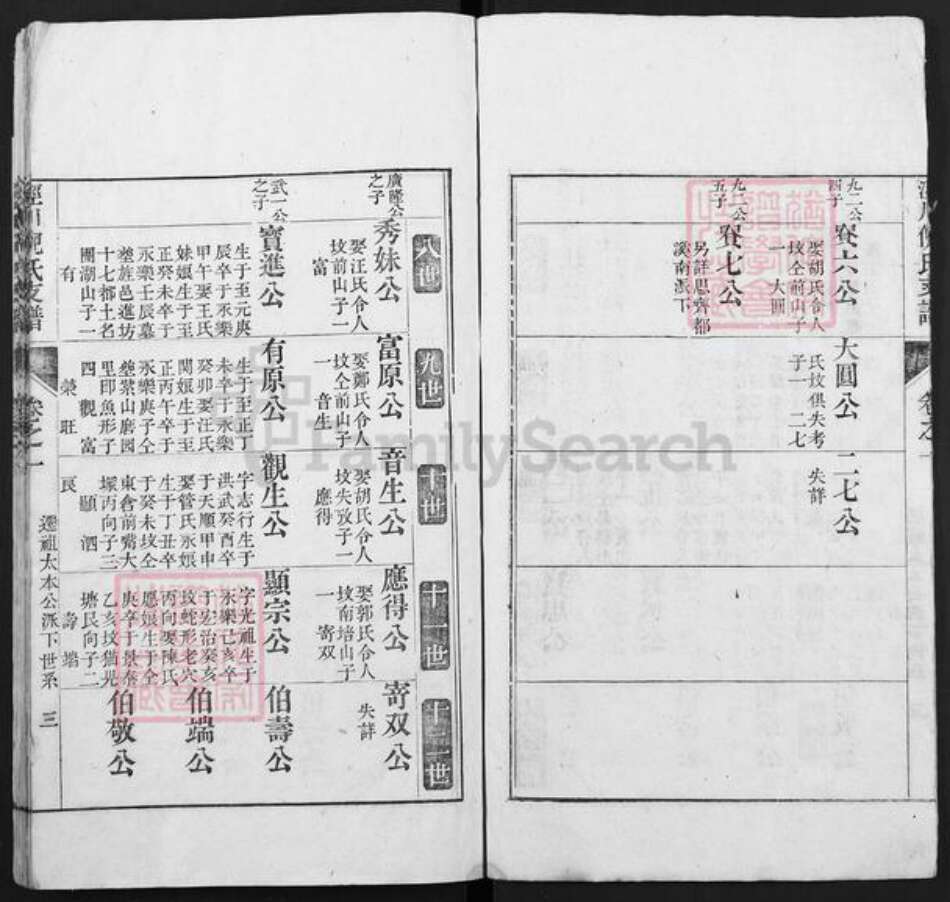 九二公
四子
賽六公
娶胡氏令人
坟仝前山子
一 大圓
大圓公
氏坟俱失考
子一 二七
二七公
失詳
九二公
五子
賽七公
另詳思齊都
溪南派下
八世
九世
十世
十一世
十二世
廣隆公
之子
秀妹公
娶汪氏令人
坟前山子一
富
富原公
娶鄭氏令人
坟仝前山子
一 音生
音生公
娶胡氏令人
坟失攷子一
應得
應得公
娶郭氏令人
坟南培山子
一 寄双
寄双公
失詳
武一公
之子
寶進公
生于至元庚
辰卒于永樂
甲午娶王氏
妹娘生于至
正癸未卒于
永樂壬辰墓
塟族邑進坊
十七都土名
團湖山子一
有
有原公
生于至正丁
未卒于永樂
癸卯娶汪氏
閏娘生于至
正丙午卒于
永樂庚子仝
塟葉山廳園
里即魚形子
四 觀 富
榮 旺
觀生公
字志行生于
洪武癸酉卒
于天順甲申
娶管氏永娘
生于丁丑卒
于癸未坟仝
東倉前嘴大
塚丙向子三
顯 泗
長
顯宗公
字光祖生于
永樂己亥卒
于宏治癸亥
坟蛇形老穴
丙向娶陳氏
愿娘生于仝
庚卒于景泰
乙亥坟猫兒
塘艮向子二
壽 端
伯壽公
伯端公
伯敬公
涇川倪氏支譜
卷之一
遷祖太本公派下世系 三
FamilySearch